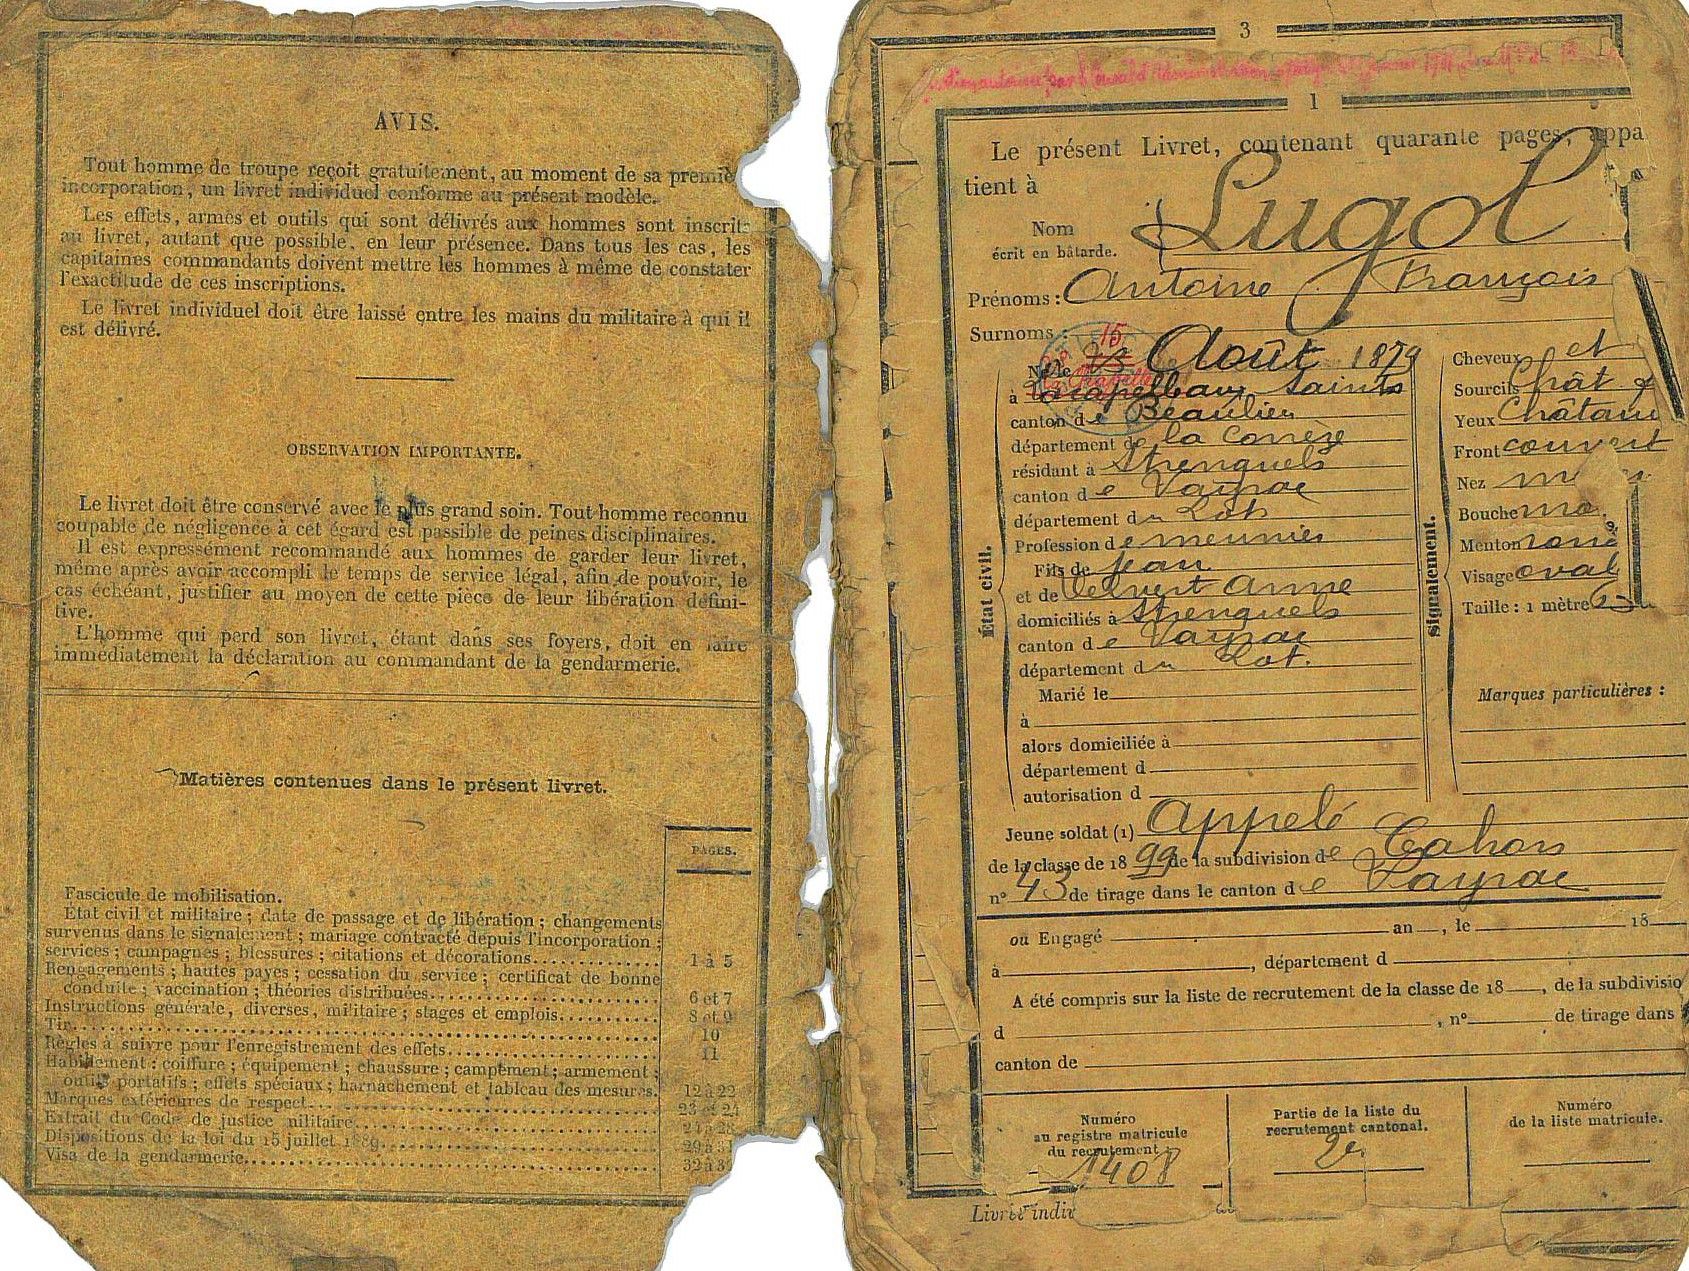 AVIS.
Tout homme de troupe reçoit gratuitement, au moment de sa premiè
incorporation, un livret individuel conforme au présent modèle.
Les effets, armes et outils qui sont délivrés aux hommes sont inscrits
au livret, autant que possible, en leur présence. Dans tous les cas, les
capitaines commandants doivent mettre les hommes à même de constater
l'exactitude de ces inscriptions.
Le livret individuel doit être laissé entre les mains du militaire à qui il
est délivré.
OBSERVATION IMPORTANTE.
Le livret doit être conservé avec le plus grand soin. Tout homme reconnu
coupable de négligence à cet égard est passible de peines disciplinaires.
Il est expressément recommandé aux hommes de garder leur livret,
même après avoir accompli le temps de service légal, afin de pouvoir, le
cas échéant, justifier au moyen de cette pièce de leur libération défini-
tive.
L'homme qui perd son livret, étant dans ses foyers, doit en faire
immédiatement la déclaration au commandant de la gendarmerie.
Matières contenues dans le présent livret.
PAGES.
Fascicule de mobilisation.
État civil et militaire ; date de passage et de libération ; changements
survenus dans le signalement ; mariage contracté depuis l'incorporation ;
services ; campagnes ; blessures ; citations et décorations.............. 1 à 5
Rengagements ; hautes payes ; cessation du service ; certificat de bonne
conduite ; vaccination ; théories distribuées.............. 6 et 7
Instructions générale, diverses, militaire ; stages et emplois............ 8 et 9
Tir.............. 10
Règles à suivre pour l'enregistrement des effets.............. 11
Habillement : coiffure ; équipement ; chaussure ; campement ; armement ;
outils portatifs ; effets spéciaux ; harnachement et tableau des mesures. 12 à 22
Marques extérieures de respect.............. 23 et 24
Extrait du Code de justice militaire.............. 24 à 28
Dispositions de la loi du 15 juillet 1889.............. 29 à 31
Visa de la gendarmerie.............. 32 à 3
3
1
Le présent Livret, contenant quarante pages, appa
tient à
Nom Lugol
écrit en bâtarde.
Prénoms : Antoine François
Surnoms :
15
Né le Août 1879
à Lachapelle aux Saints
canton de Beaulieu
département de la Corrèze
résidant à Strenquels
canton de Vayrac
département du Lot
Profession de meunier
Fils de Jean
et de Anne
domiciliés à Strenquels
canton de Vayrac
département du Lot.
Marié le
à
alors domiciliée à
département d
autorisation d
État civil.
Signalement.
Cheveux et
Sourcils chât
Yeux Châtain
Front couvert
Nez m
Bouche mo
Menton rond
Visage oval
Taille : 1 mètre
Marques particulières :
Jeune soldat (1) Appelé
de la classe de 1899 de la subdivision de Cahors
n° 43 de tirage dans le canton de Vayrac
ou Engagé an , le 18
à , département d
A été compris sur la liste de recrutement de la classe de 18 , de la subdivisio
d , n° de tirage dans
canton de
Numéro
au registre matricule
du recrutement
1408
Partie de la liste du
recrutement cantonal.
2e
Numéro
de la liste matricule.
Livret indiv